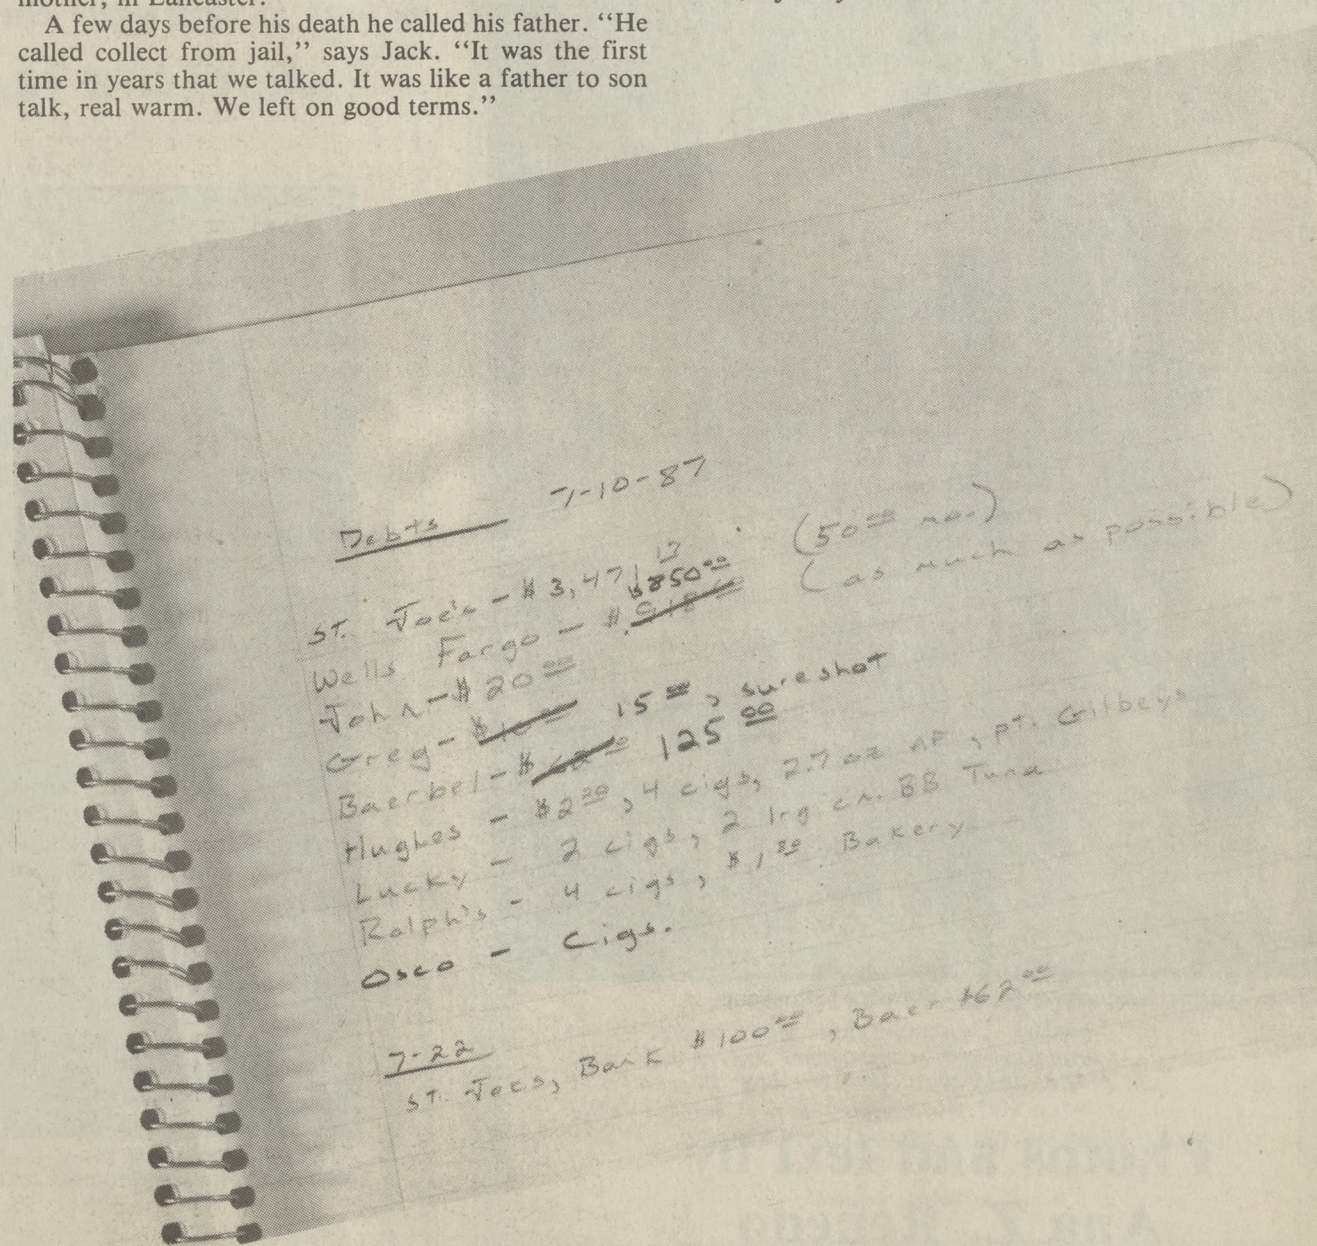 mother, in Lancaster.
A few days before his death he called his father. “He
called collect from jail,” says Jack. “It was the first
time in years that we talked. It was like a father to son
talk, real warm. We left on good terms.”
Debts 7-10-87
ST. Joe's - $3,471 13 (50 00 mo.)
Wells Fargo - $ $850 00 (as much as possible)
John - $20 00
Greg - $10 00 15 00, sureshot
Baerbel - $62 00 125 00
Hughes - $2 20, 4 cigs, 2.7 oz NF, pt. Gilbeys
Lucky - 2 cigs, 2 lrg cn. BB Tuna
Ralph's - 4 cigs, $1 80 Bakery
Osco - Cigs.
7-22
ST. Joes, Bank $100 00, Baer $62 00